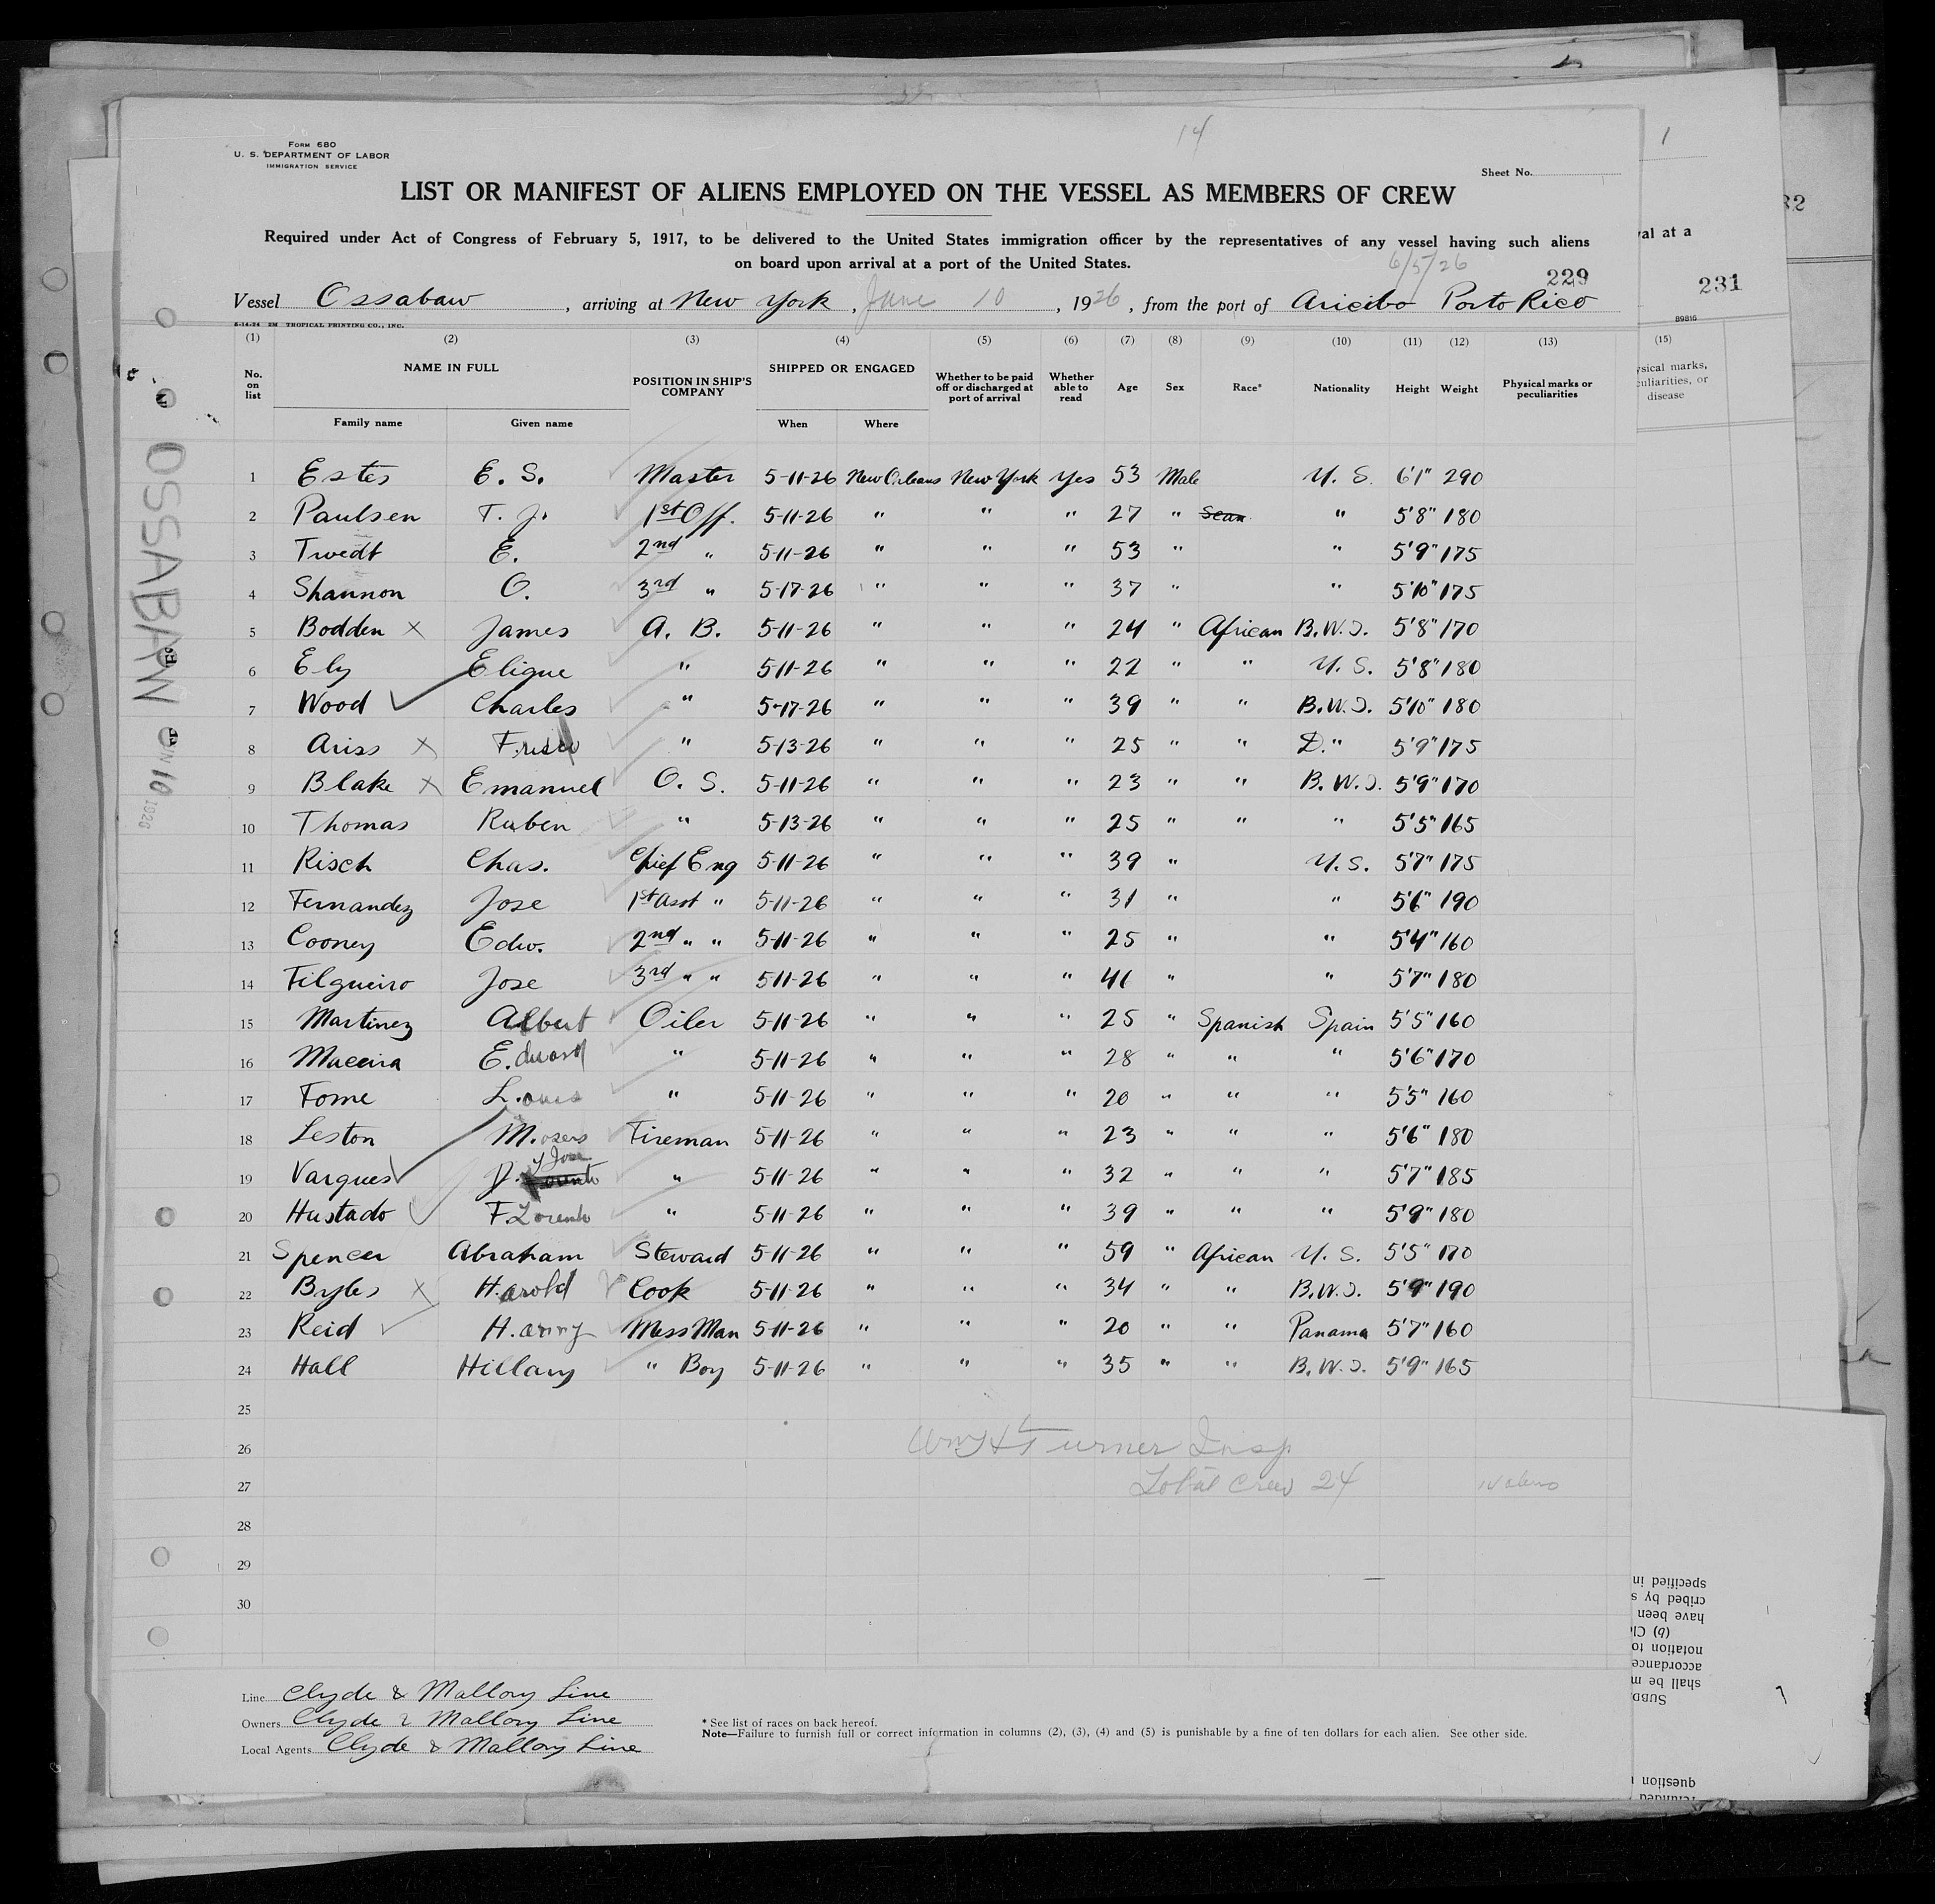 14
Form 680
U. S. DEPARTMENT OF LABOR
IMMIGRATION SERVICE
Sheet No.
LIST OR MANIFEST OF ALIENS EMPLOYED ON THE VESSEL AS MEMBERS OF CREW
Required under Act of Congress of February 5, 1917, to be delivered to the United States immigration officer by the representatives of any vessel having such aliens
on board upon arrival at a port of the United States.
6/5/26
229
Vessel Ossabaw, arriving at New York, June 10, 1926, from the port of Aricibo Porto Rico
5-14-24 2M TROPICAL PRINTING CO., INC.
(1) (2) (3) (4) (5) (6) (7) (8) (9) (10) (11) (12) (13)
No. on list NAME IN FULL POSITION IN SHIP'S COMPANY SHIPPED OR ENGAGED Whether to be paid off or discharged at port of arrival Whether able to read Age Sex Race* Nationality Height Weight Physical marks or peculiarities
Family name Given name When Where
1 Estes E. S. Master 5-11-26 New Orleans New York Yes 53 Male U. S. 6'1" 290
2 Paulsen T. J. 1st Off. 5-11-26 " " " 27 " Scan " 5'8" 180
3 Twedt E. 2nd " 5-11-26 " " " 53 " " 5'9" 175
4 Shannon O. 3rd " 5-17-26 " " " 37 " " 5'10" 175
5 Bodden X James A. B. 5-11-26 " " " 24 " African B.W.I. 5'8" 170
6 Ely Eligue " 5-11-26 " " " 22 " " U. S. 5'8" 180
7 Wood Charles " 5-17-26 " " " 39 " " B.W.I. 5'10" 180
8 Ariss X " 5-13-26 " " " 25 " " D." 5'9" 175
9 Blake X Emanuel O. S. 5-11-26 " " " 23 " " B.W.I. 5'9" 170
10 Thomas Ruben " 5-13-26 " " " 25 " " " 5'5" 165
11 Risch Chas. Chief Eng 5-11-26 " " " 39 " U.S. 5'7" 175
12 Fernandez Jose 1st Asst " 5-11-26 " " " 31 " " 5'6" 190
13 Cooney Edw. 2nd " " 5-11-26 " " " 25 " " 5'4" 160
14 Filgueiro Jose 3rd " " 5-11-26 " " " 41 " " 5'7" 180
15 Martinez Albert Oiler 5-11-26 " " " 25 " Spanish Spain 5'5" 160
16 Maceira E.duard " 5-11-26 " " " 28 " " " 5'6" 170
17 Fome L.ouis " 5-11-26 " " " 20 " " " 5'5" 160
18 Leston M. Fireman 5-11-26 " " " 23 " " " 5'6" 180
19 Vargues " 5-11-26 " " " 32 " " " 5'7" 185
20 Hustado F. Lorento " 5-11-26 " " " 39 " " " 5'9" 180
21 Spencer Abraham Steward 5-11-26 " " " 59 " African U. S. 5'5" 170
22 Byles X H.arold Cook 5-11-26 " " " 34 " " B.W.I. 5'9" 190
23 Reid H.arry Mess Man 5-11-26 " " " 20 " " Panama 5'7" 160
24 Hall Hillary " Boy 5-11-26 " " " 35 " " B.W.I. 5'9" 165
25
26 Wm H Turner Insp
27 Total Crew 24
28
29
30
Line Clyde & Mallory Line
Owners Clyde & Mallory Line
Local Agents Clyde & Mallory Line
* See list of races on back hereof.
Note—Failure to furnish full or correct information in columns (2), (3), (4) and (5) is punishable by a fine of ten dollars for each alien. See other side.
OSSABAW
JUN 10 1926
1
32
val at a
231
89816
(15)
ysical marks,
culiarities, or
disease
specified in
cribed by s
have been
(b) Cl
notation to
accordance
shall be m
SUBD
question